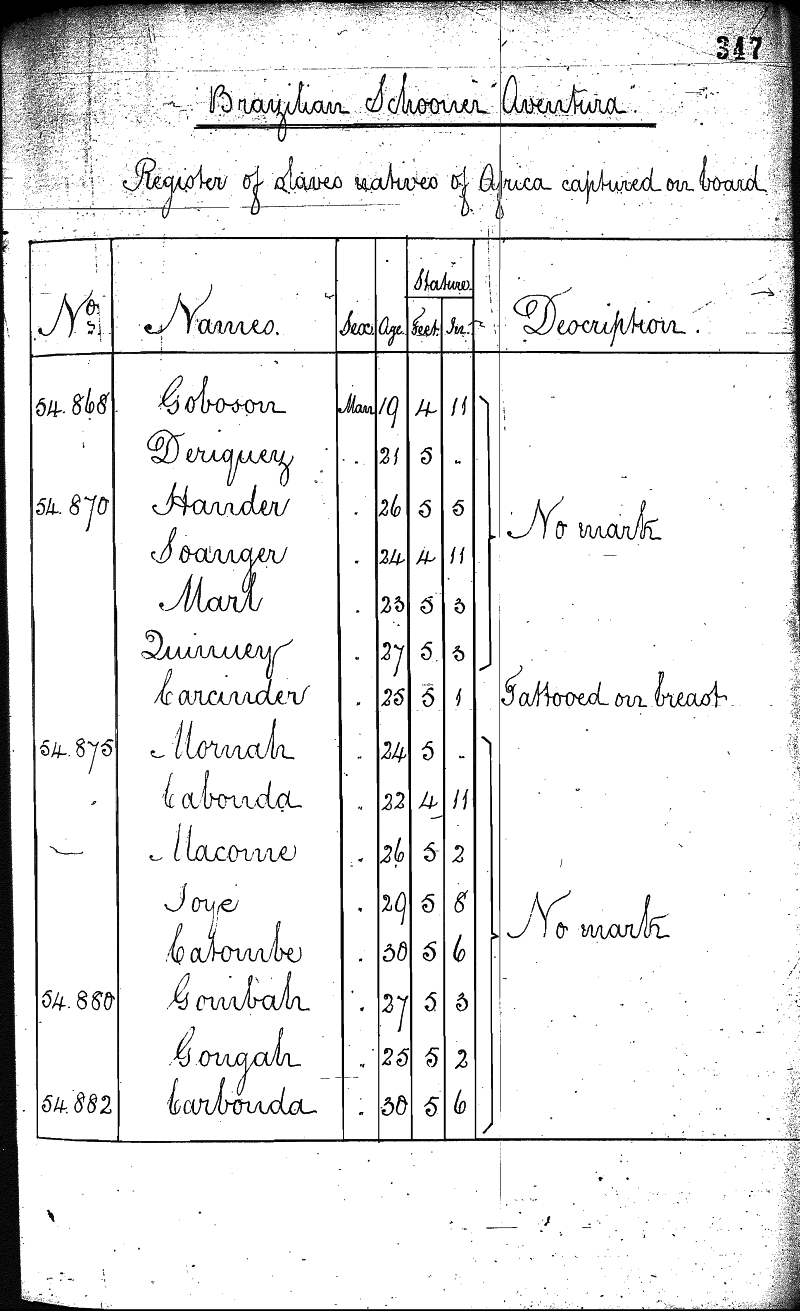 347
Brazilian Schooner "Aventura".
Register of slaves natives of Africa captured on board
Stature
Nos Names. Sex Age Feet In. Description.
54.868 Goboson Man 19 4 11
Deriquey . 21 5 .
54.870 Hander . 26 5 5
No mark
Soanger . 24 4 11
Marl . 23 5 3
Quinuey . 27 5 3
Carcinder . 25 5 1 Tattooed on breast
54.875 Mornah . 24 5 .
Cabonda . 22 4 11
Macome . 26 5 2
Joye . 29 5 8
No mark
Catombe . 30 5 6
54.880 Gombah . 27 5 3
Gongah . 25 5 2
54.882 Carbonda . 30 5 6